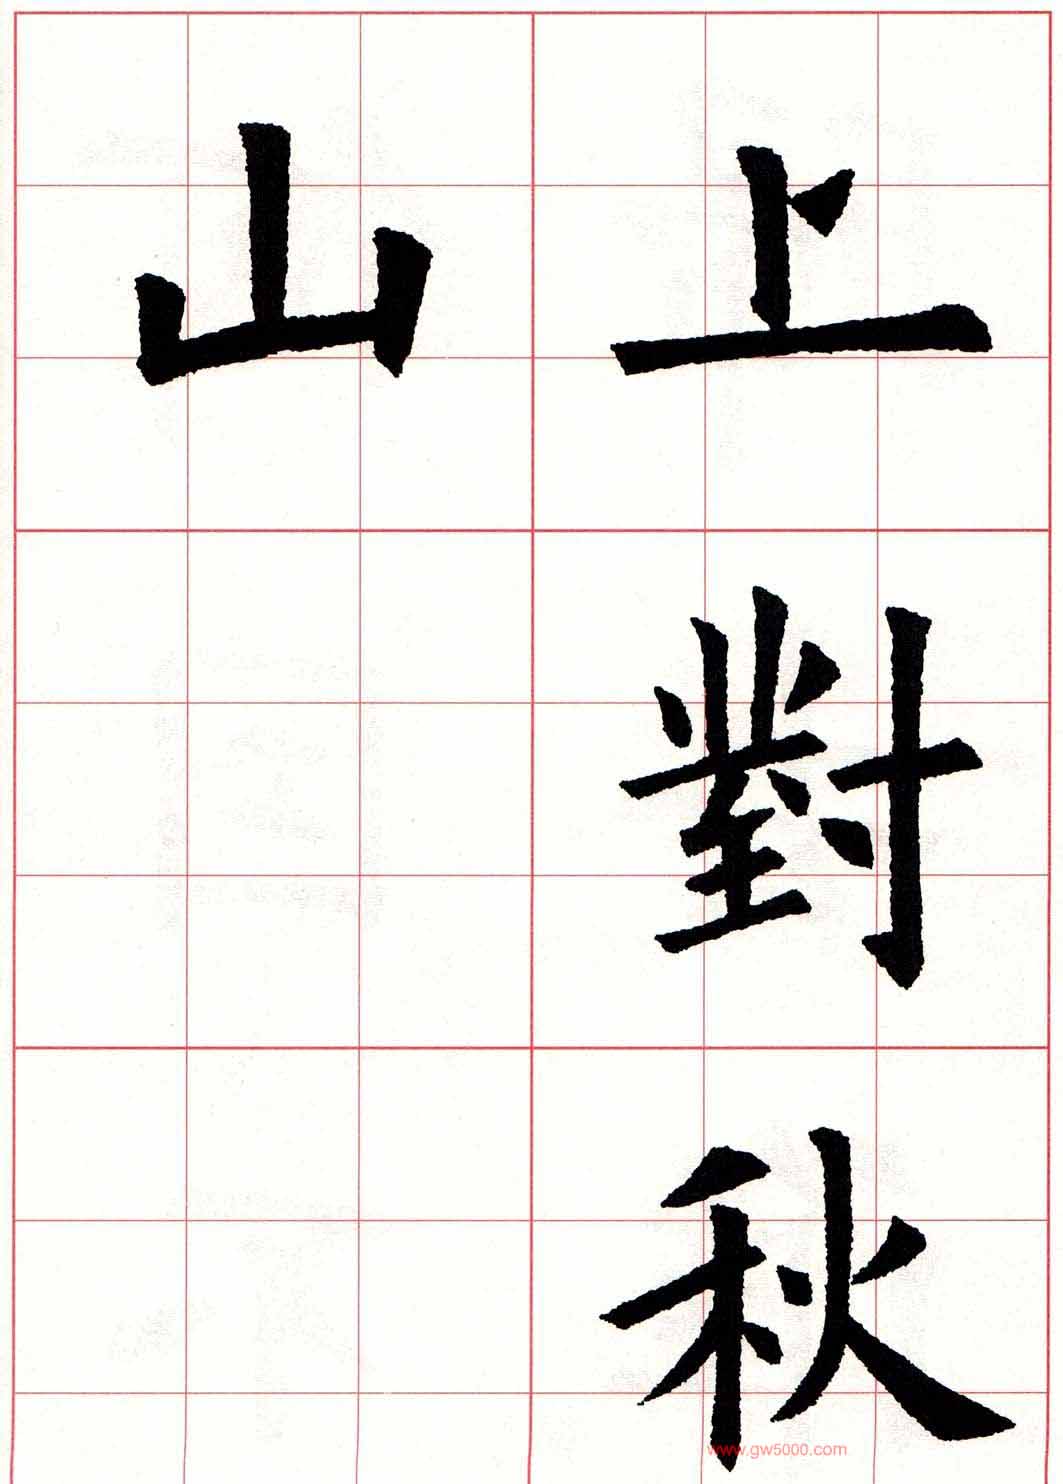 上對秋
山
www.gw5000.com